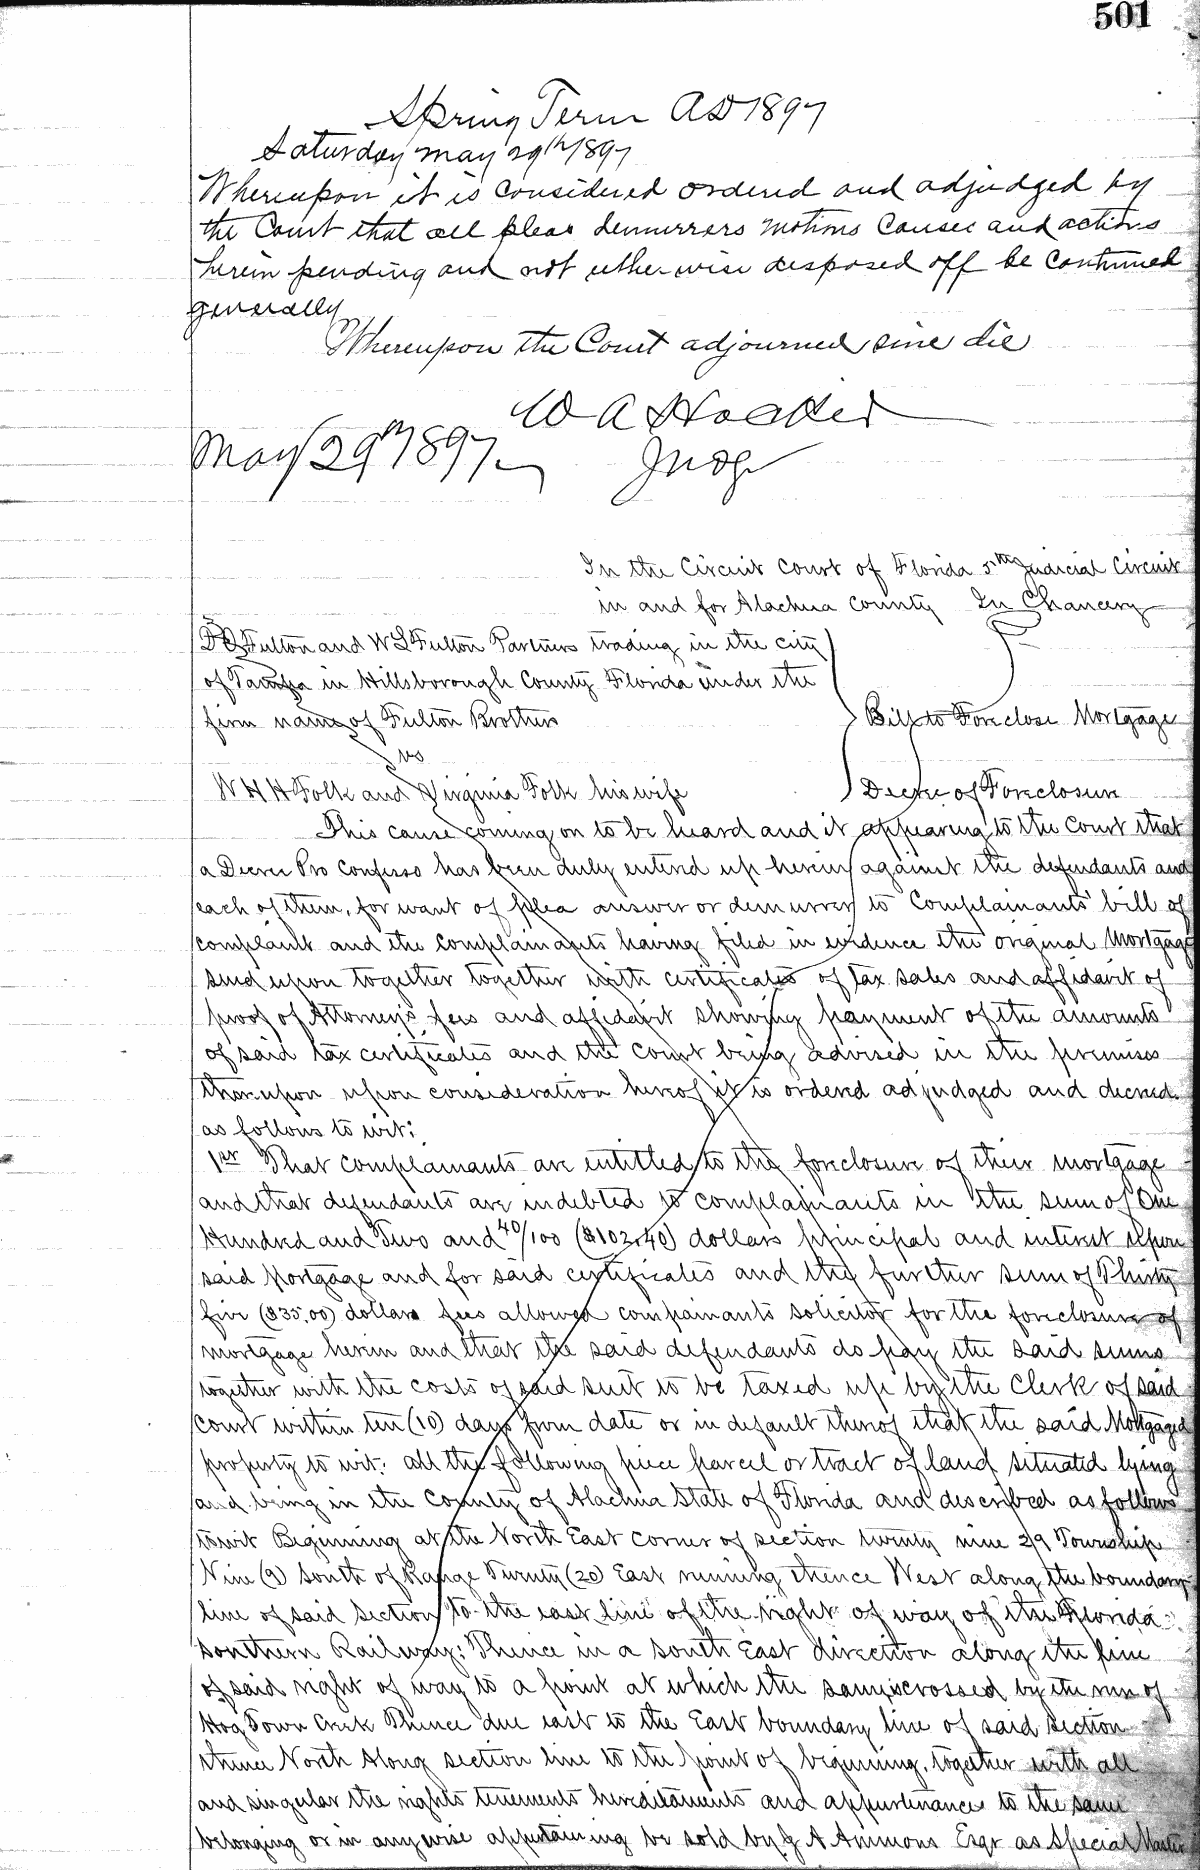 501
Spring Term AD 1897
Saturday May 29th 1897
Whereupon it is considered ordered and adjudged by
the Court that all pleas demurrers motions causes and actions
herein pending and not otherwise disposed off be continued
generally
Whereupon the Court adjourned sine die
W A Hocker
May 29th 1897
Judge
In the Circuit Court of Florida 5th Judicial Circuit
in and for Alachua County In Chancery
Fulton and W S Fulton Partners trading in the city
of Tampa in Hillsborough County Florida under the
firm name of Fulton Brothers
Bill to Foreclose Mortgage
vs
W H H Folk and Virginia Folk his wife
Decree of Foreclosure
This cause coming on to be heard and it appearing to the Court that
a Decree Pro Confesso has been duly entered up herein against the defendants and
each of them, for want of plea answer or demurrer to Complainants' bill of
complaint and the complainants having filed in evidence the original Mortgage
sued upon together together with certificates of tax sales and affidavit of
proof of Attorney's fees and affidavit showing payment of the amounts
of said tax certificates and the court being advised in the premises
thereupon upon consideration hereof it is ordered adjudged and decreed
as follows to wit:
1st That complainants are entitled to the foreclosure of their mortgage
and that defendants are indebted to complainants in the sum of One
Hundred and Two and 40/100 ($102.40) dollars principal and interest upon
said Mortgage and for said certificates and the further sum of Thirty
five ($35.00) dollars fees allowed compainants solicitor for the foreclosure of
mortgage herein and that the said defendants do pay the said sums
together with the costs of said suit to be taxed up by the Clerk of said
Court within ten (10) days from date or in default thereof that the said Mortgaged
property to wit: all the following piece parcel or tract of land situated lying
and being in the County of Alachua State of Florida and described as follows
towit Beginning at the North East corner of section twenty nine 29 Township
Nine (9) South of Range Twenty (20) East running thence West along the boundary
line of said section to the east line of the right of way of the Florida
Southern Railway; Thence in a South East direction along the line
of said right of way to a point at which the same is crossed by the run of
Hog Town Creek Thence due east to the East boundary line of said section
thence North along section line to the point of beginning, together with all
and singular the rights tenements hereditaments and appurtenances to the same
belonging or in anywise appertaining be sold by J A Ammons Esqr as Special Master